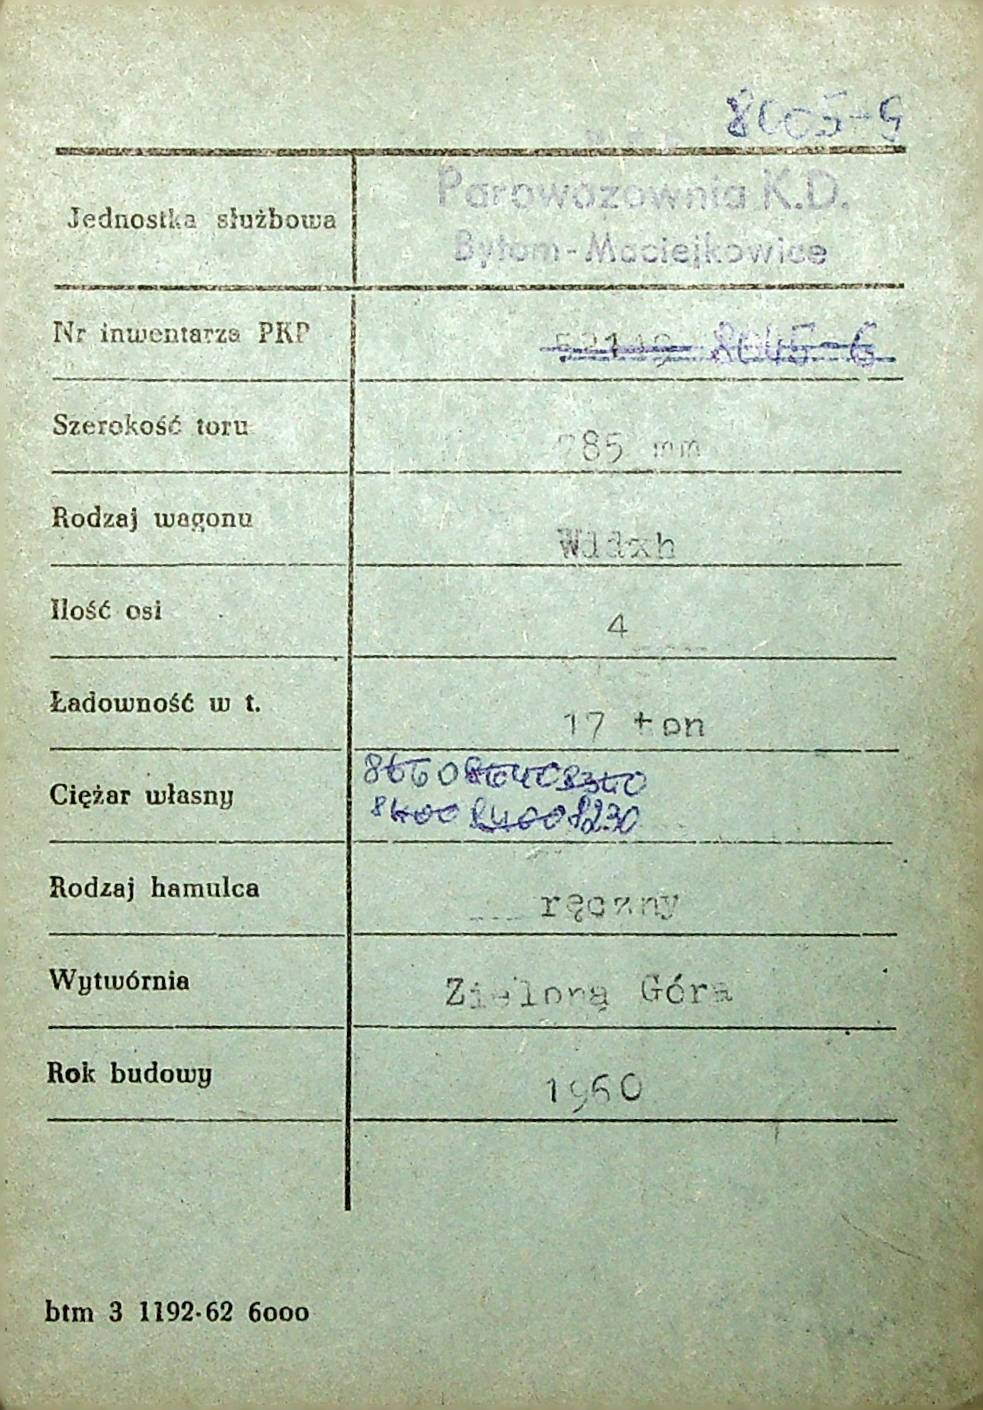 8005-9
Parowozownia K.D.
Jednostka służbowa
Bytom-Maciejkowice
Nr inwentarza PKP 8045-6
Szerokość toru 785 mm
Rodzaj wagonu Wddxh
Ilość osi 4
Ładowność w t. 17 ton
8660 8640 8340
Ciężar własny
8400 8400 8230
Rodzaj hamulca ręczny
Wytwórnia Zielona Góra
Rok budowy 1960
btm 3 1192-62 6000